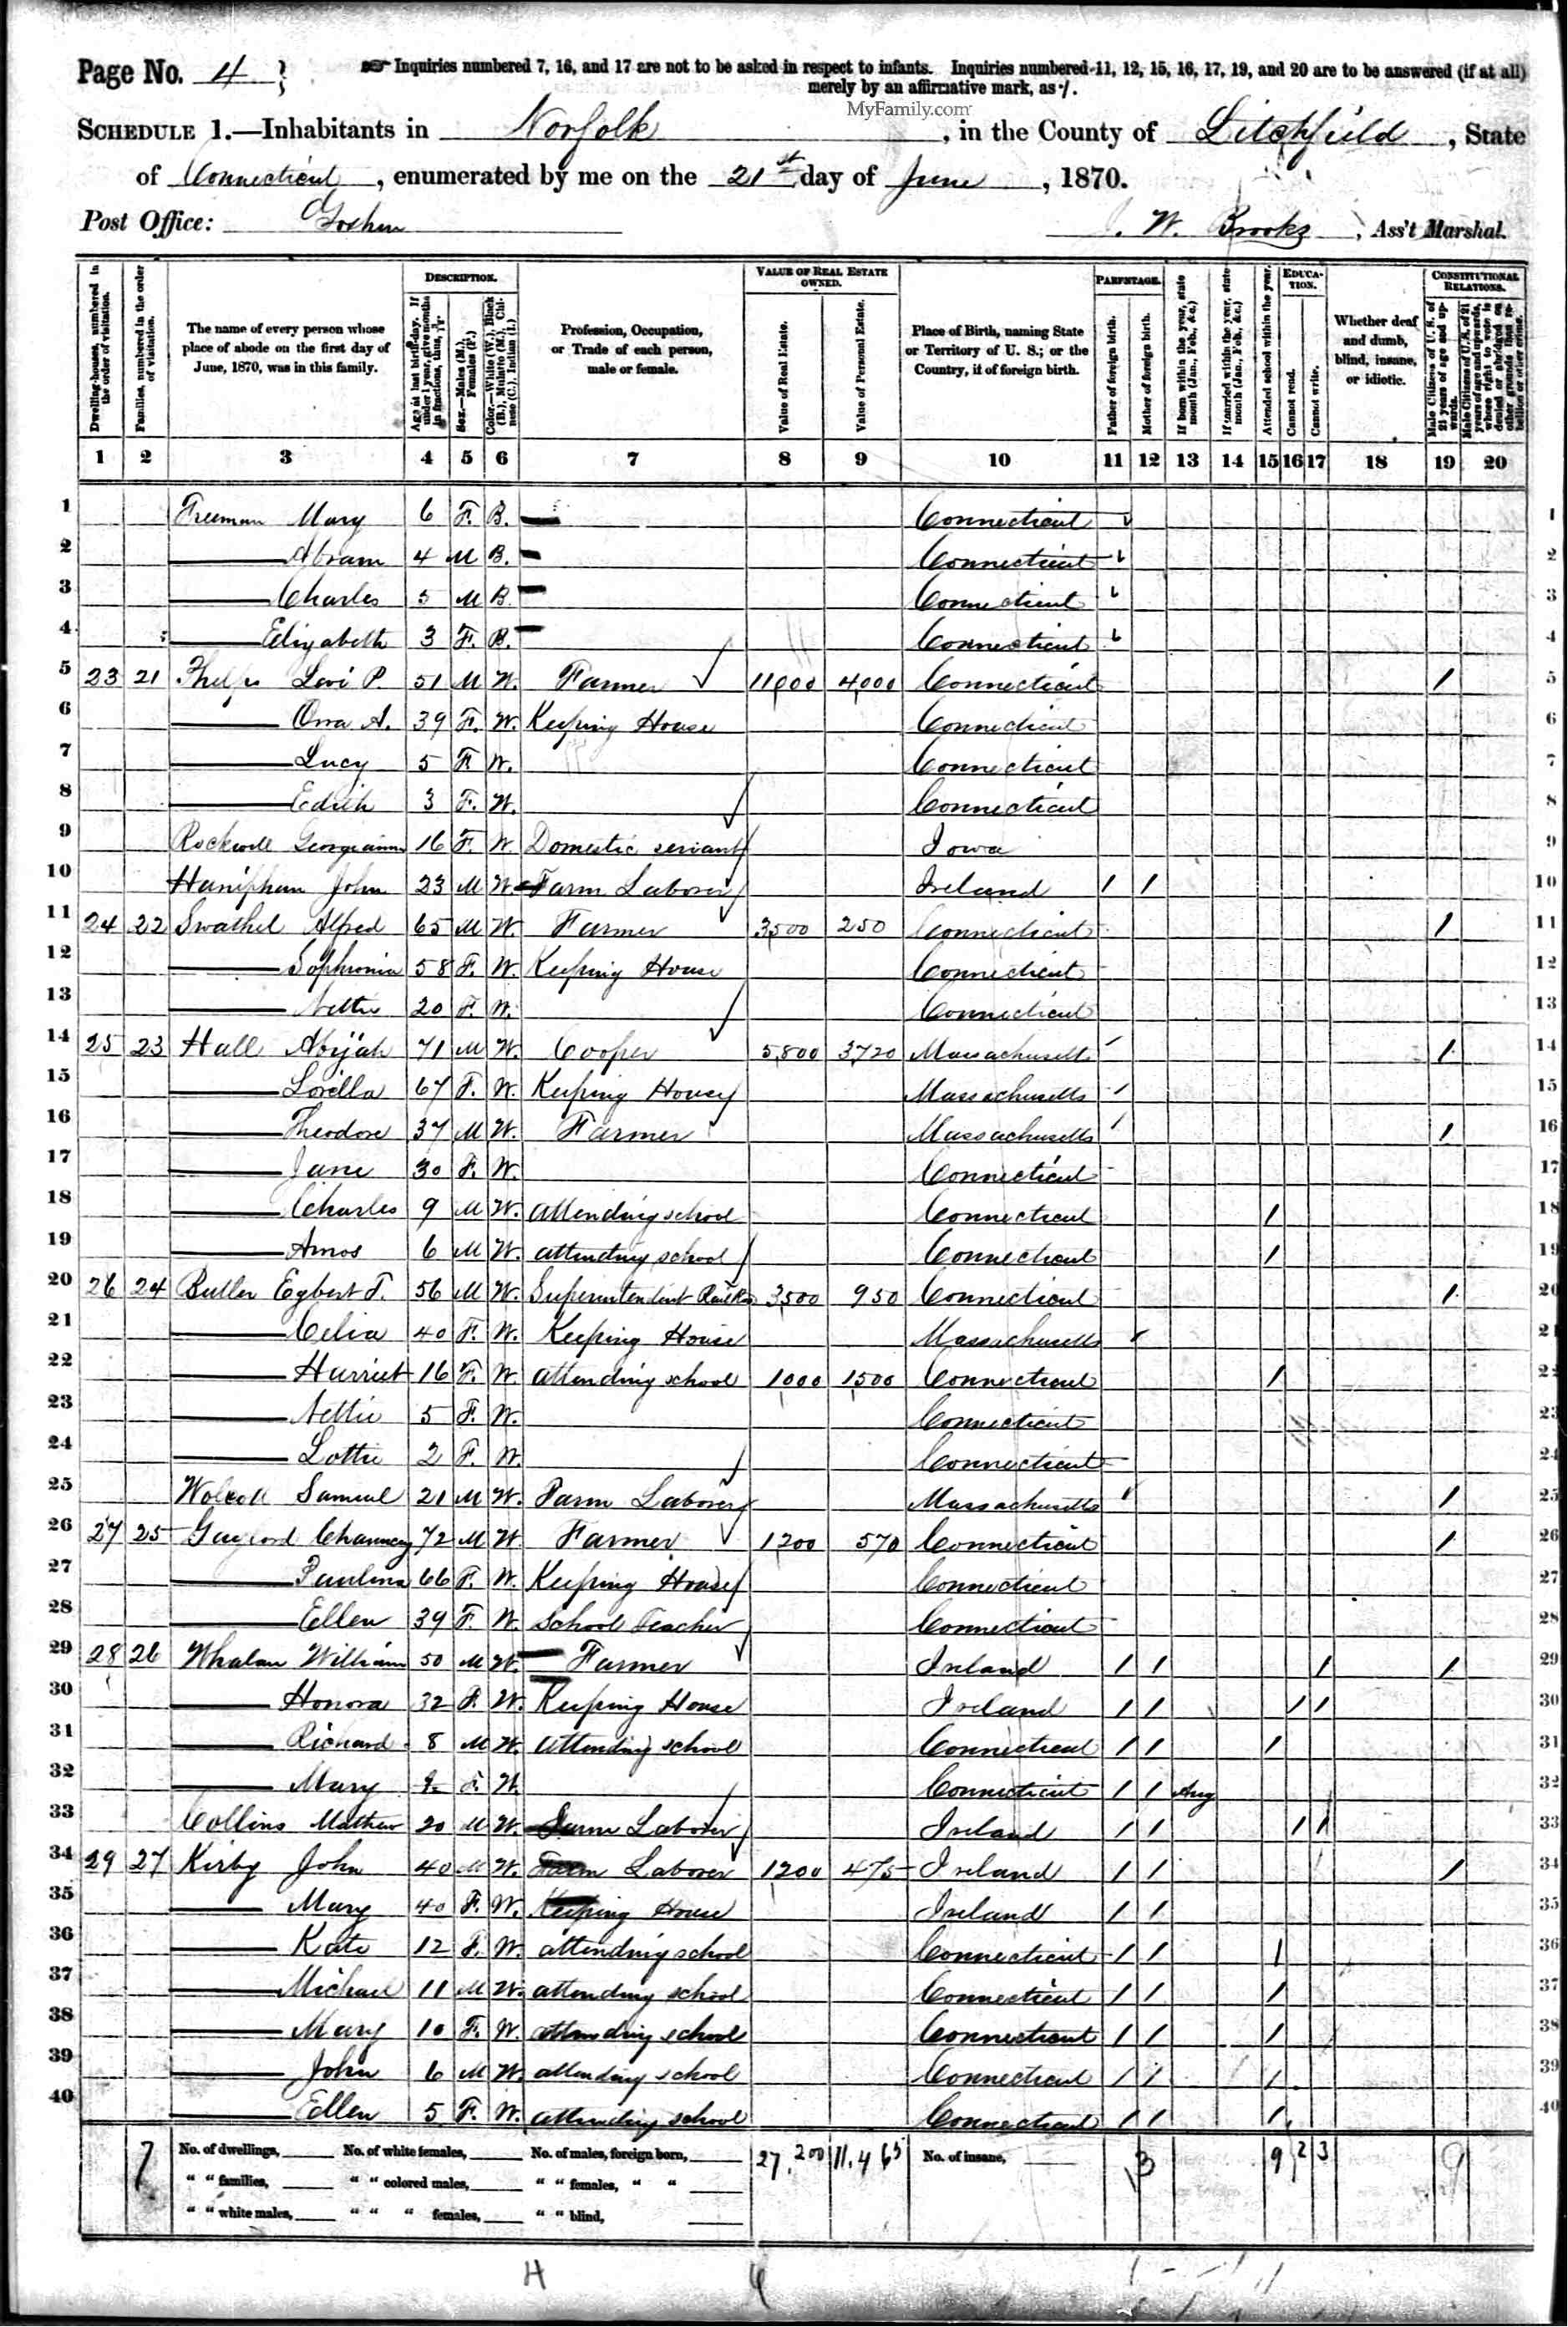 Page No. 4
Inquiries numbered 7, 16, and 17 are not to be asked in respect to infants. Inquiries numbered 11, 12, 15, 16, 17, 19, and 20 are to be answered (if at all)
merely by an affirmative mark, as /.
MyFamily.com
SCHEDULE 1.—Inhabitants in Norfolk, in the County of Litchfield, State
of Connecticut, enumerated by me on the 21st day of June, 1870.
Post Office: Goshen
W. Brooks, Ass't Marshal.
DESCRIPTION.
VALUE OF REAL ESTATE OWNED.
PARENTAGE.
EDUCATION.
CONSTITUTIONAL RELATIONS.
Dwelling-houses, numbered in the order of visitation.
Families, numbered in the order of visitation.
The name of every person whose place of abode on the first day of June, 1870, was in this family.
Age at last birth-day. If under 1 year, give months in fractions, thus, 3/12.
Sex.—Males (M.), Females (F.)
Color.—White (W.), Black (B.), Mulatto (M.), Chinese (C.), Indian (I.)
Profession, Occupation, or Trade of each person, male or female.
Value of Real Estate.
Value of Personal Estate.
Place of Birth, naming State or Territory of U. S.; or the Country, if of foreign birth.
Father of foreign birth.
Mother of foreign birth.
If born within the year, state month (Jan., Feb., &c.)
If married within the year, state month (Jan., Feb., &c.)
Attended school within the year.
Cannot read.
Cannot write.
Whether deaf and dumb, blind, insane, or idiotic.
Male Citizens of U. S. of 21 years of age and upwards.
Male Citizens of U. S. of 21 years of age and upwards, whose right to vote is denied or abridged on other grounds than rebellion or other crime.
1 2 3 4 5 6 7 8 9 10 11 12 13 14 15 16 17 18 19 20
1 Freeman Mary 6 F. B. Connecticut 1
2 Abram 4 M B. Connecticut 2
3 Charles 5 M B. Connecticut 3
4 Elizabeth 3 F. B. Connecticut 4
5 23 21 Phelps Levi P. 51 M W. Farmer 11000 4000 Connecticut / 5
6 Orra A. 39 F. W. Keeping House Connecticut 6
7 Lucy 5 F. W. Connecticut 7
8 Edith 3 F. W. Connecticut 8
9 Rockwell Georgianna 16 F. W. Domestic servant Iowa 9
10 Haniphan John 23 M W. Farm Laborer Ireland / / 10
11 24 22 Swathel Alfred 65 M W. Farmer 3500 250 Connecticut / 11
12 Sophronia 58 F. W. Keeping House Connecticut 12
13 Nettie 20 F. W. Connecticut 13
14 25 23 Hall Abijah 71 M W. Cooper 5800 3720 Massachusetts / 14
15 Lorilla 67 F. W. Keeping House Massachusetts 15
16 Theodore 37 M W. Farmer Massachusetts / 16
17 Jane 30 F. W. Connecticut 17
18 Charles 9 M W. attending school Connecticut / 18
19 Amos 6 M W. attending school Connecticut / 19
20 26 24 Butler Egbert T. 56 M W. Superintendent 3500 950 Connecticut / 20
21 Celia 40 F. W. Keeping House Massachusetts 21
22 Harriet 16 F. W. attending school 1000 1500 Connecticut / 22
23 Nettie 5 F. W. Connecticut 23
24 Lottie 2 F. W. Connecticut 24
25 Wolcott Samuel 21 M W. Farm Laborer Massachusetts / 25
26 27 25 Gaylord Chauncey 72 M W. Farmer 1200 570 Connecticut / 26
27 Paulina 66 F. W. Keeping House Connecticut 27
28 Ellen 39 F. W. School Teacher Connecticut 28
29 28 26 Whalan William 50 M W. Farmer Ireland / / / / 29
30 Honora 32 F. W. Keeping House Ireland / / / / 30
31 Richard 8 M W. attending school Connecticut / / / 31
32 Mary F. W. Connecticut / / Aug 32
33 Collins Mathew 20 M W. Farm Laborer Ireland / / / / 33
34 29 27 Kirby John 40 M W. Farm Laborer 1200 475 Ireland / / / 34
35 Mary 40 F. W. Keeping House Ireland / / 35
36 Kate 12 F. W. attending school Connecticut / / / 36
37 Michael 11 M W. attending school Connecticut / / / 37
38 Mary 10 F. W. attending school Connecticut / / / 38
39 John 6 M W. attending school Connecticut / / / 39
40 Ellen 5 F. W. attending school Connecticut / / / 40
7 No. of dwellings, No. of white females, No. of males, foreign born, 27,200 11,465 No. of insane, 13 9 2 3 9
" " families, " " colored males, " " females, " "
" " white males, " " " females, " " blind,
H